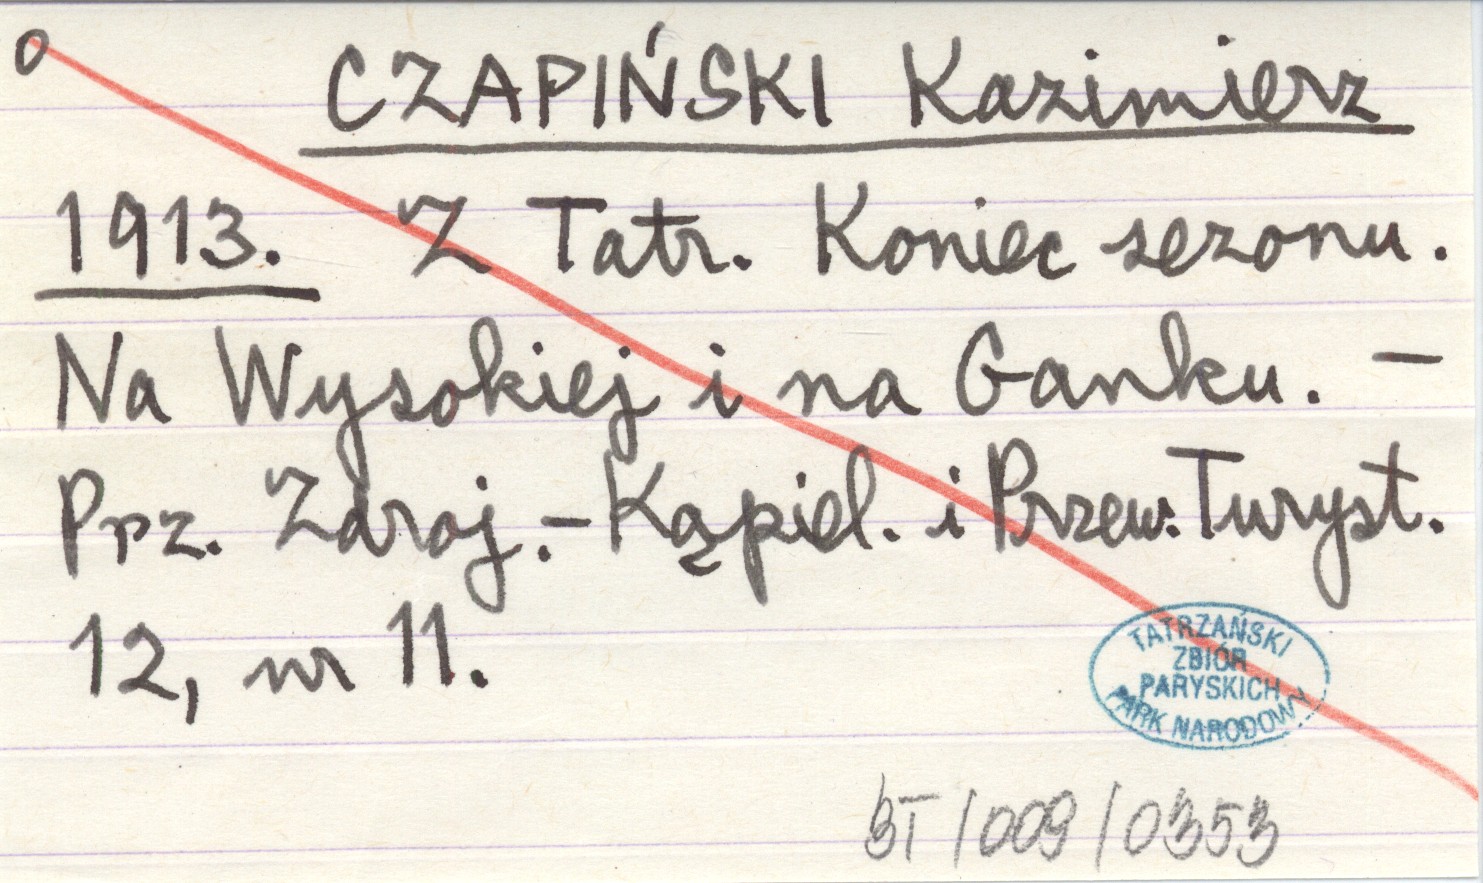 o
CZAPIŃSKI Kazimierz
1913. Z Tatr. Koniec sezonu.
Na Wysokiej i na Ganku. —
Prz. Zdroj.-Kąpiel. i Przew. Turyst.
12, nr 11.
TATRZAŃSKI
ZBIÓR
PARYSKICH
PARK NARODOWY
BT/009/0353